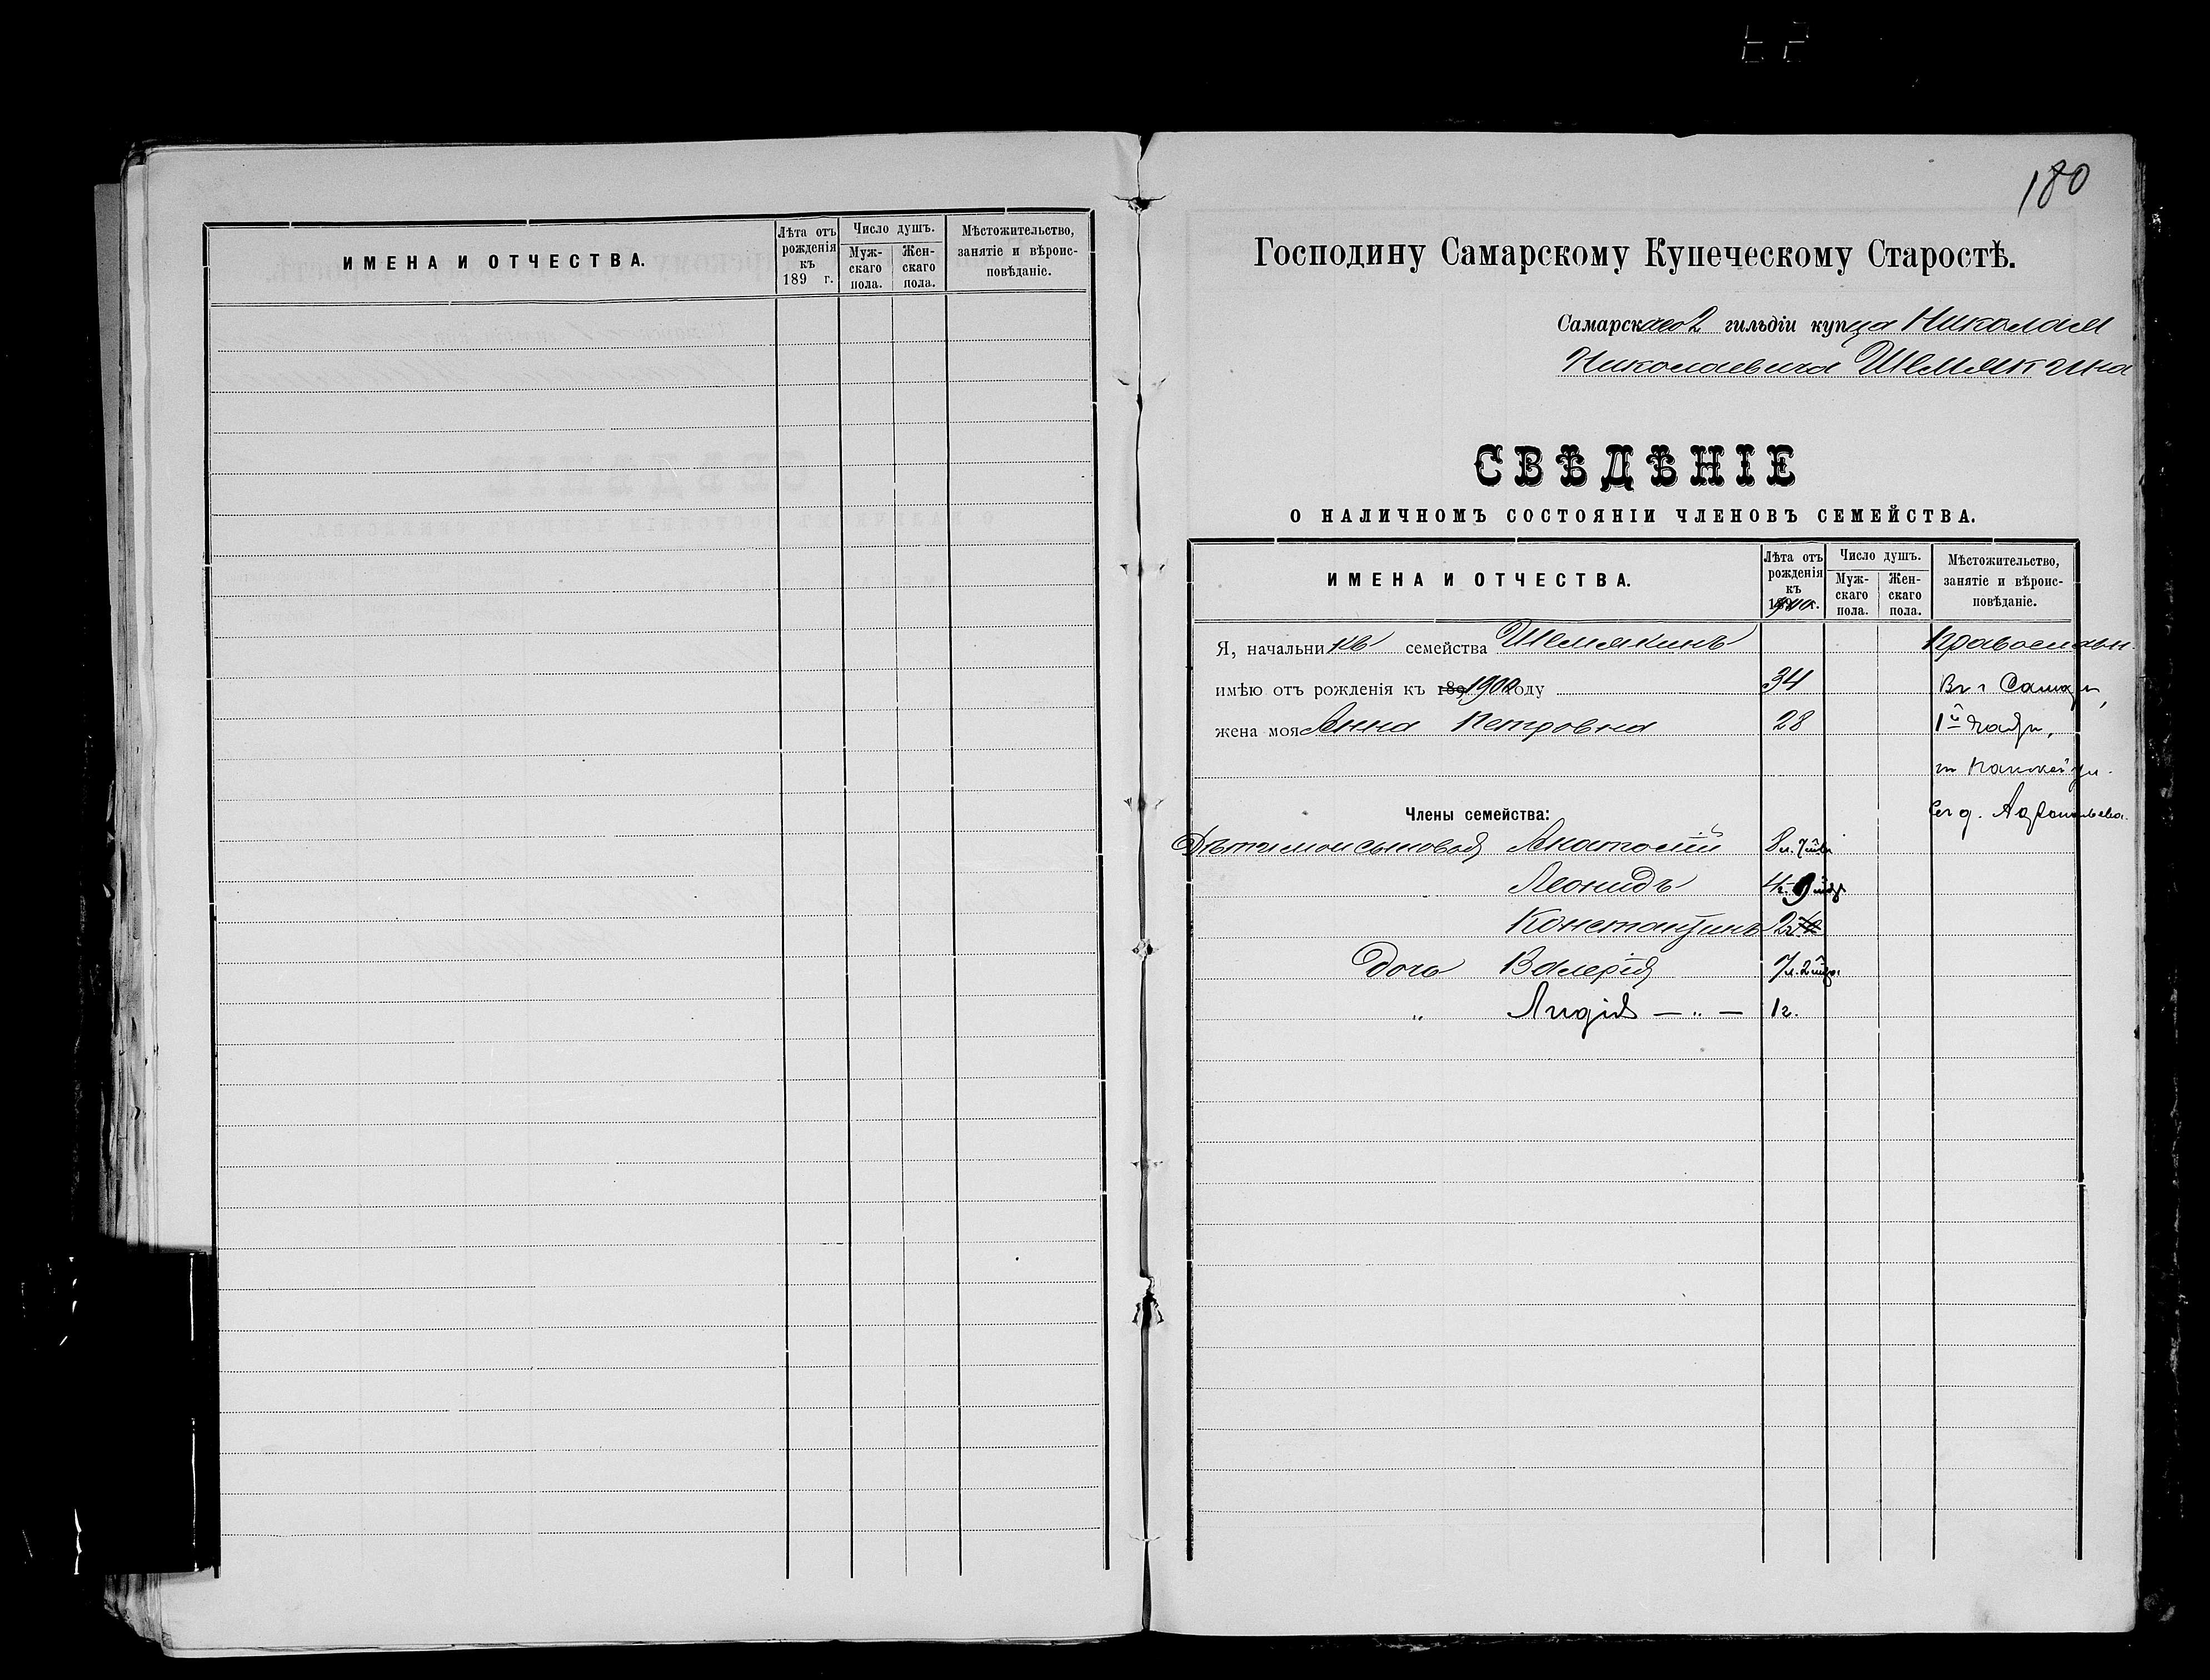 ИМЕНА И ОТЧЕСТВА.
Лѣта отъ рожденія къ 189 г.
Число душъ.
Мужскаго пола.
Женскаго пола.
Мѣстожительство, занятіе и вѣроисповѣданіе.
180
Господину Самарскому Купеческому Старостѣ.
Самарскаго 2 гильдіи купца Николая
Николаевича Шемякина
СВѢДѢНІЕ
О НАЛИЧНОМЪ СОСТОЯНІИ ЧЛЕНОВЪ СЕМЕЙСТВА.
ИМЕНА И ОТЧЕСТВА.
Лѣта отъ рожденія къ 1900 г.
Число душъ.
Мужскаго пола.
Женскаго пола.
Мѣстожительство, занятіе и вѣроисповѣданіе.
Я, начальникъ семейства Шемякинъ Православн.
имѣю отъ рожденія къ 189 1900 году 34 Въ г Самарѣ,
жена моя Анна Петровна 28 1й части,
ул.
Члены семейства:
Дѣти мои сыновья Анатолій 8 л. 7
Леонидъ 4 г. 9
Константинъ 2 г.
Дочь Валерія 7 л. 2
" Лидія — " — 1 г.